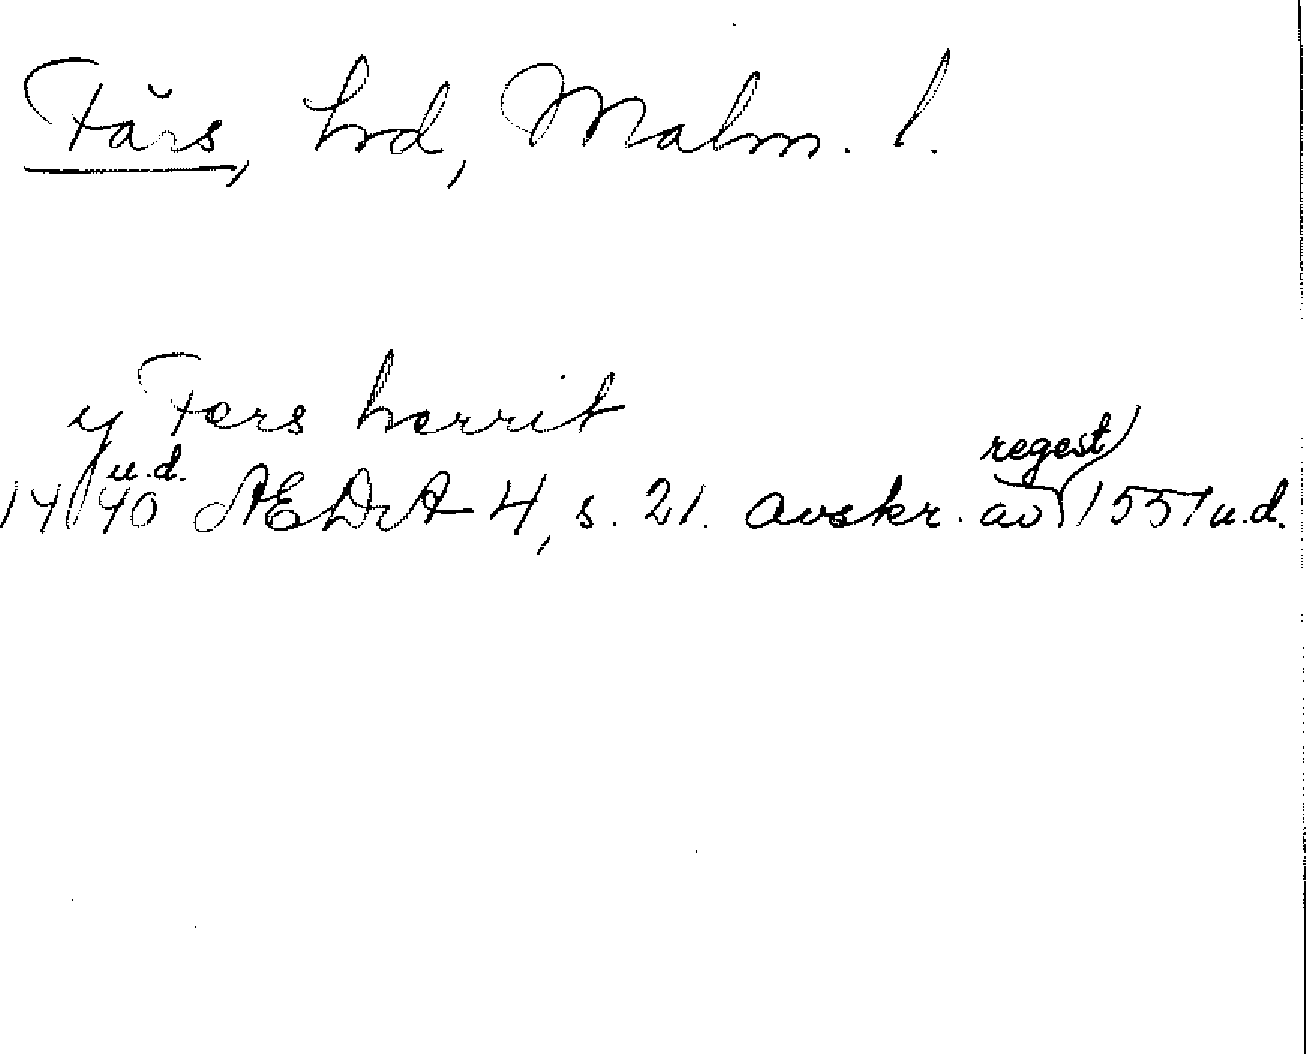 Färs, hrd, Malm. l.
y Fers herrit
1440 u.d. ÆDA 4, s. 21. avskr. av regest 1551 u.d.